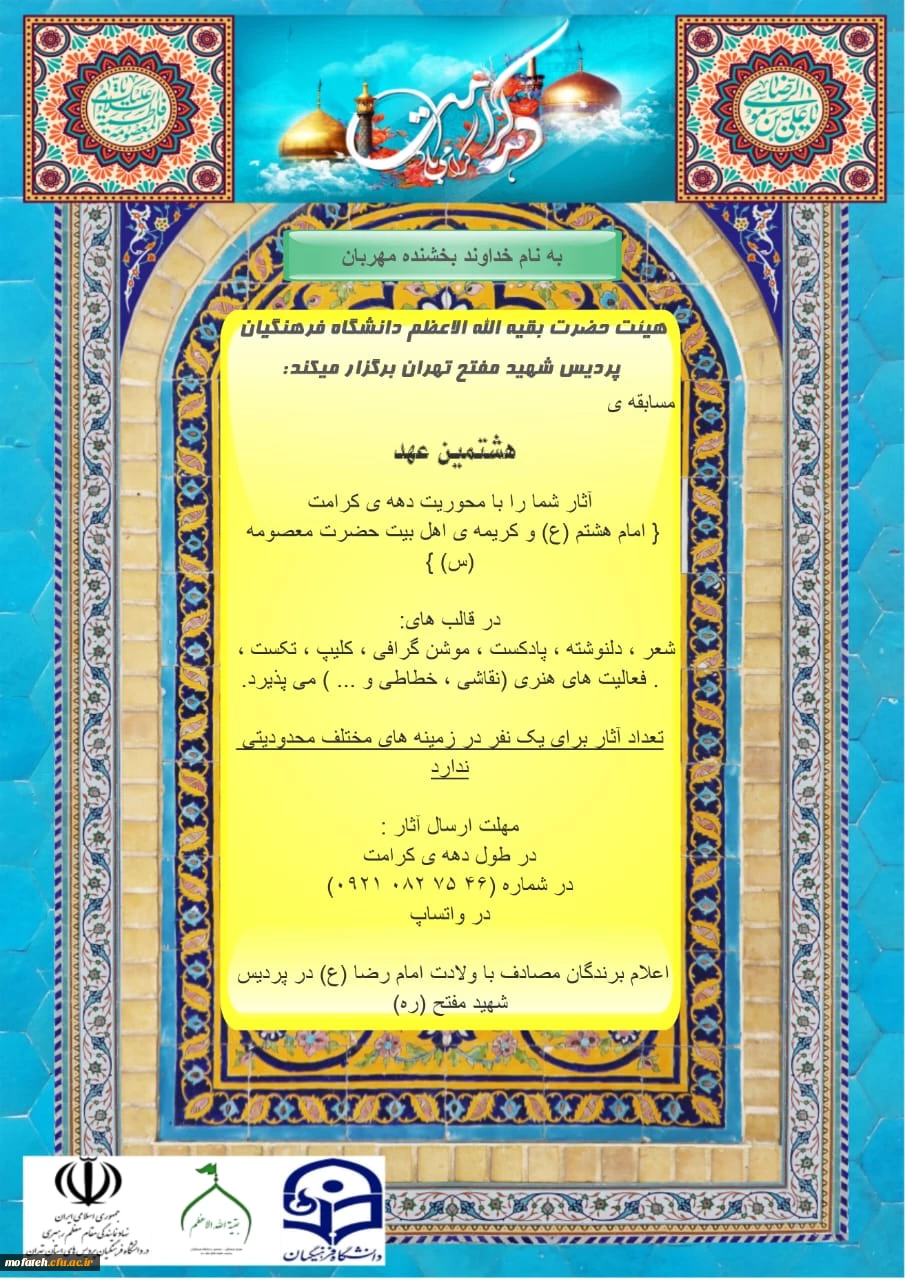 یا علی بن موسی الرضا
دهه کرامت
گرامی باد
به نام خداوند بخشنده مهربان
هیئت حضرت بقیه الله الاعظم دانشگاه فرهنگیان
پردیس شهید مفتح تهران برگزار میکند:
مسابقه ی
هشتمین عهد
آثار شما را با محوریت دهه ی کرامت
{ امام هشتم (ع) و کریمه ی اهل بیت حضرت معصومه
(س) }
در قالب های:
شعر ، دلنوشته ، پادکست ، موشن گرافی ، کلیپ ، تکست ،
. فعالیت های هنری (نقاشی ، خطاطی و ... ) می پذیرد.
تعداد آثار برای یک نفر در زمینه های مختلف محدودیتی
ندارد
مهلت ارسال آثار :
در طول دهه ی کرامت
در شماره (۴۶ ۷۵ ۰۸۲ ۰۹۲۱)
در واتساپ
اعلام برندگان مصادف با ولادت امام رضا (ع) در پردیس
شهید مفتح (ره)
دانشگاه فرهنگیان
بقیة الله الاعظم
جمهوری اسلامی ایران
نهاد نمایندگی مقام معظم رهبری
در دانشگاه فرهنگیان پردیس های استان تهران
mofateh.cfu.ac.ir